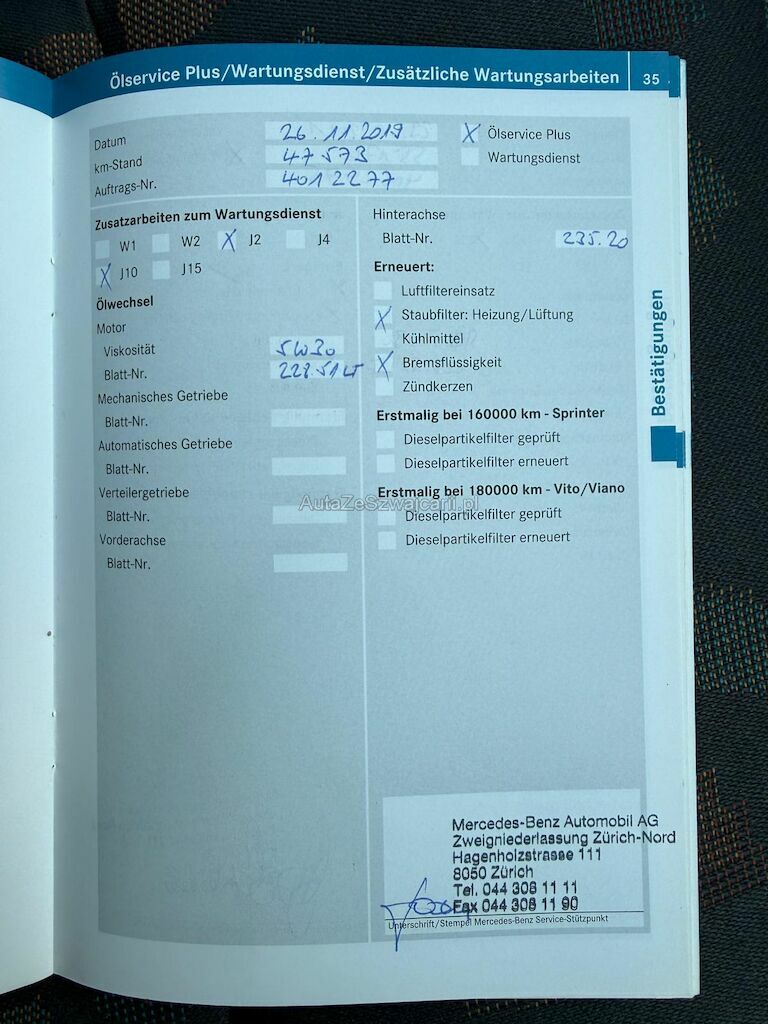 Ölservice Plus/Wartungsdienst/Zusätzliche Wartungsarbeiten 35
Datum 26.11.2019
km-Stand 47573
Auftrags-Nr. 4012277
X Ölservice Plus
Wartungsdienst
Zusatzarbeiten zum Wartungsdienst
W1 W2 X J2 J4
X J10 J15
Ölwechsel
Motor
Viskosität 5W30
Blatt-Nr. 228.51 LT
Mechanisches Getriebe
Blatt-Nr.
Automatisches Getriebe
Blatt-Nr.
Verteilergetriebe
Blatt-Nr.
Vorderachse
Blatt-Nr.
Hinterachse
Blatt-Nr. 235.20
Erneuert:
Luftfiltereinsatz
X Staubfilter: Heizung/Lüftung
Kühlmittel
X Bremsflüssigkeit
Zündkerzen
Erstmalig bei 160000 km - Sprinter
Dieselpartikelfilter geprüft
Dieselpartikelfilter erneuert
Erstmalig bei 180000 km - Vito/Viano
Dieselpartikelfilter geprüft
Dieselpartikelfilter erneuert
Bestätigungen
AutaZeSzwajcarii.pl
Mercedes-Benz Automobil AG
Zweigniederlassung Zürich-Nord
Hagenholzstrasse 111
8050 Zürich
Tel. 044 306 11 11
Fax 044 306 11 90
Unterschrift/Stempel Mercedes-Benz Service-Stützpunkt